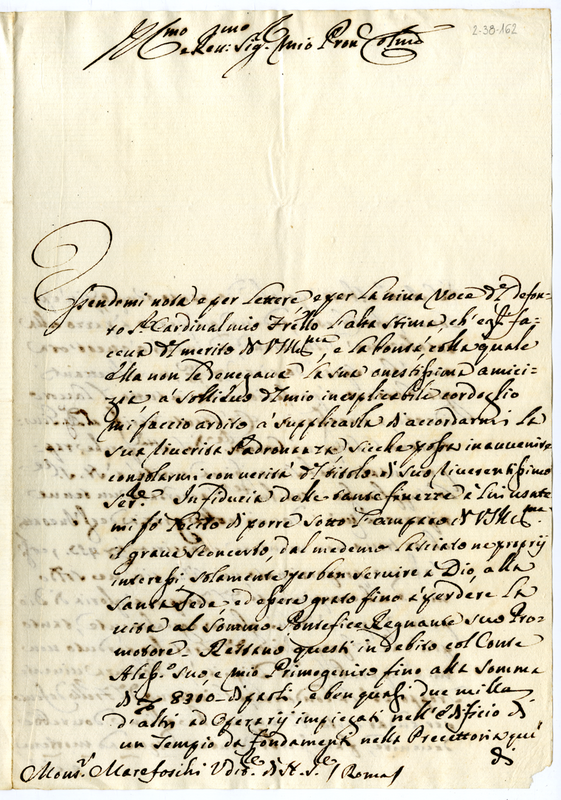 2-38-162
Ill.mo e Rev.mo Sig.r mio Pron Col.mo
Essendomi nota e per Lettere e per La viva Voce del defon-
to Sr. Cardinal mio Frello L'alta Stima, ch'egli fa-
ceva del merito di V.S. Ill.ma, e la bontà colla quale
ella non le denegava La sua onestissima amici-
zia à sollievo del mio inesplicabile cordoglio
mi faccio ardito à supplicarla d'accordarmi La
sua riverita Padronanza sicche possa in avvenire
consolarmi con verità del titolo di suo riverentissimo
Ser.e In fiducia delle tante finezze à Lui usate
mi fò lecito di porre sotto L'amparo di V.S. Ill.ma
il grave sconcerto, dal medemo lasciato ne proprij
interessi solamente per ben servire à Dio, alla
Santa Sede, ed essere grato fino à perdere La
vita al Sommo Pontefice Regnante suo Pro-
motore. Restano questi in debito col Conte
Aless.o suo, e mio Primogenito fino alla somma
di 8300 di paoli, e ben quasi due milla
d'altri ad Operarij impiegati nell'Edificio di
un Tempio da fondamenti nella Precettoria qui
Mons.r Marefoschi Udit.e di N. S.re / Roma /